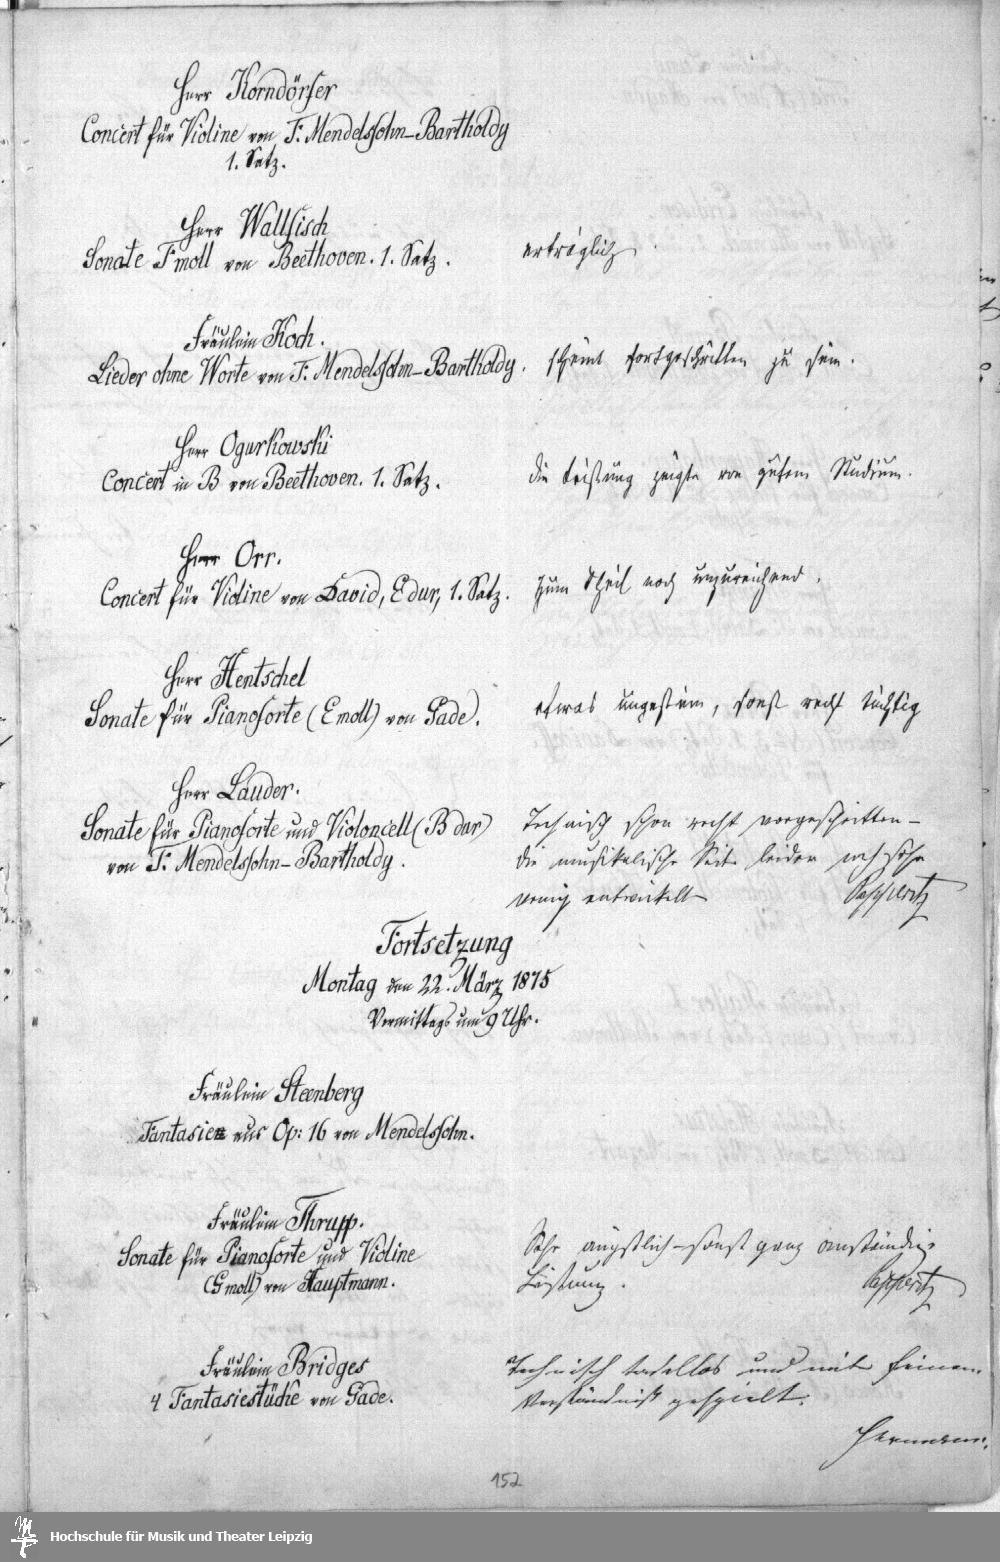 Herr Korndörfer
Concert für Violine von F. Mendelssohn-Bartholdy
1. Satz.
Herr Wallfisch
Sonate F moll von Beethoven. 1. Satz.
erträglich
Fräulein Koch.
Lieder ohne Worte von F. Mendelssohn-Bartholdy.
scheint fortgeschritten zu sein.
Herr Ogurkowski
Concert in B von Beethoven. 1. Satz.
die Leistung zeigte von gutem Studium.
Herr Orr.
Concert für Violine von David, E dur, 1. Satz.
zum Theil noch unzureichend.
Herr Hentschel
Sonate für Pianoforte (E moll) von Gade.
etwas ungestüm, sonst recht tüchtig
Herr Lauder.
Sonate für Pianoforte und Violoncell (B dur)
von F. Mendelssohn-Bartholdy.
Technisch schon recht vorgeschritten –
die musikalische Seite leider noch sehr
wenig entwickelt
Papperitz
Fortsetzung
Montag den 22. März 1875
Vormittags um 9 Uhr.
Fräulein Steenberg
Fantasie aus Op: 16 von Mendelssohn.
Fräulein Thrupp.
Sonate für Pianoforte und Violine
(G moll) von Hauptmann.
Sehr ängstlich – sonst ganz anständige
Leistung.
Papperitz
Fräulein Bridges
4 Fantasiestücke von Gade.
Technisch tadellos und mit feinem
Verständniß gespielt.
Hermann.
152
Hochschule für Musik und Theater Leipzig